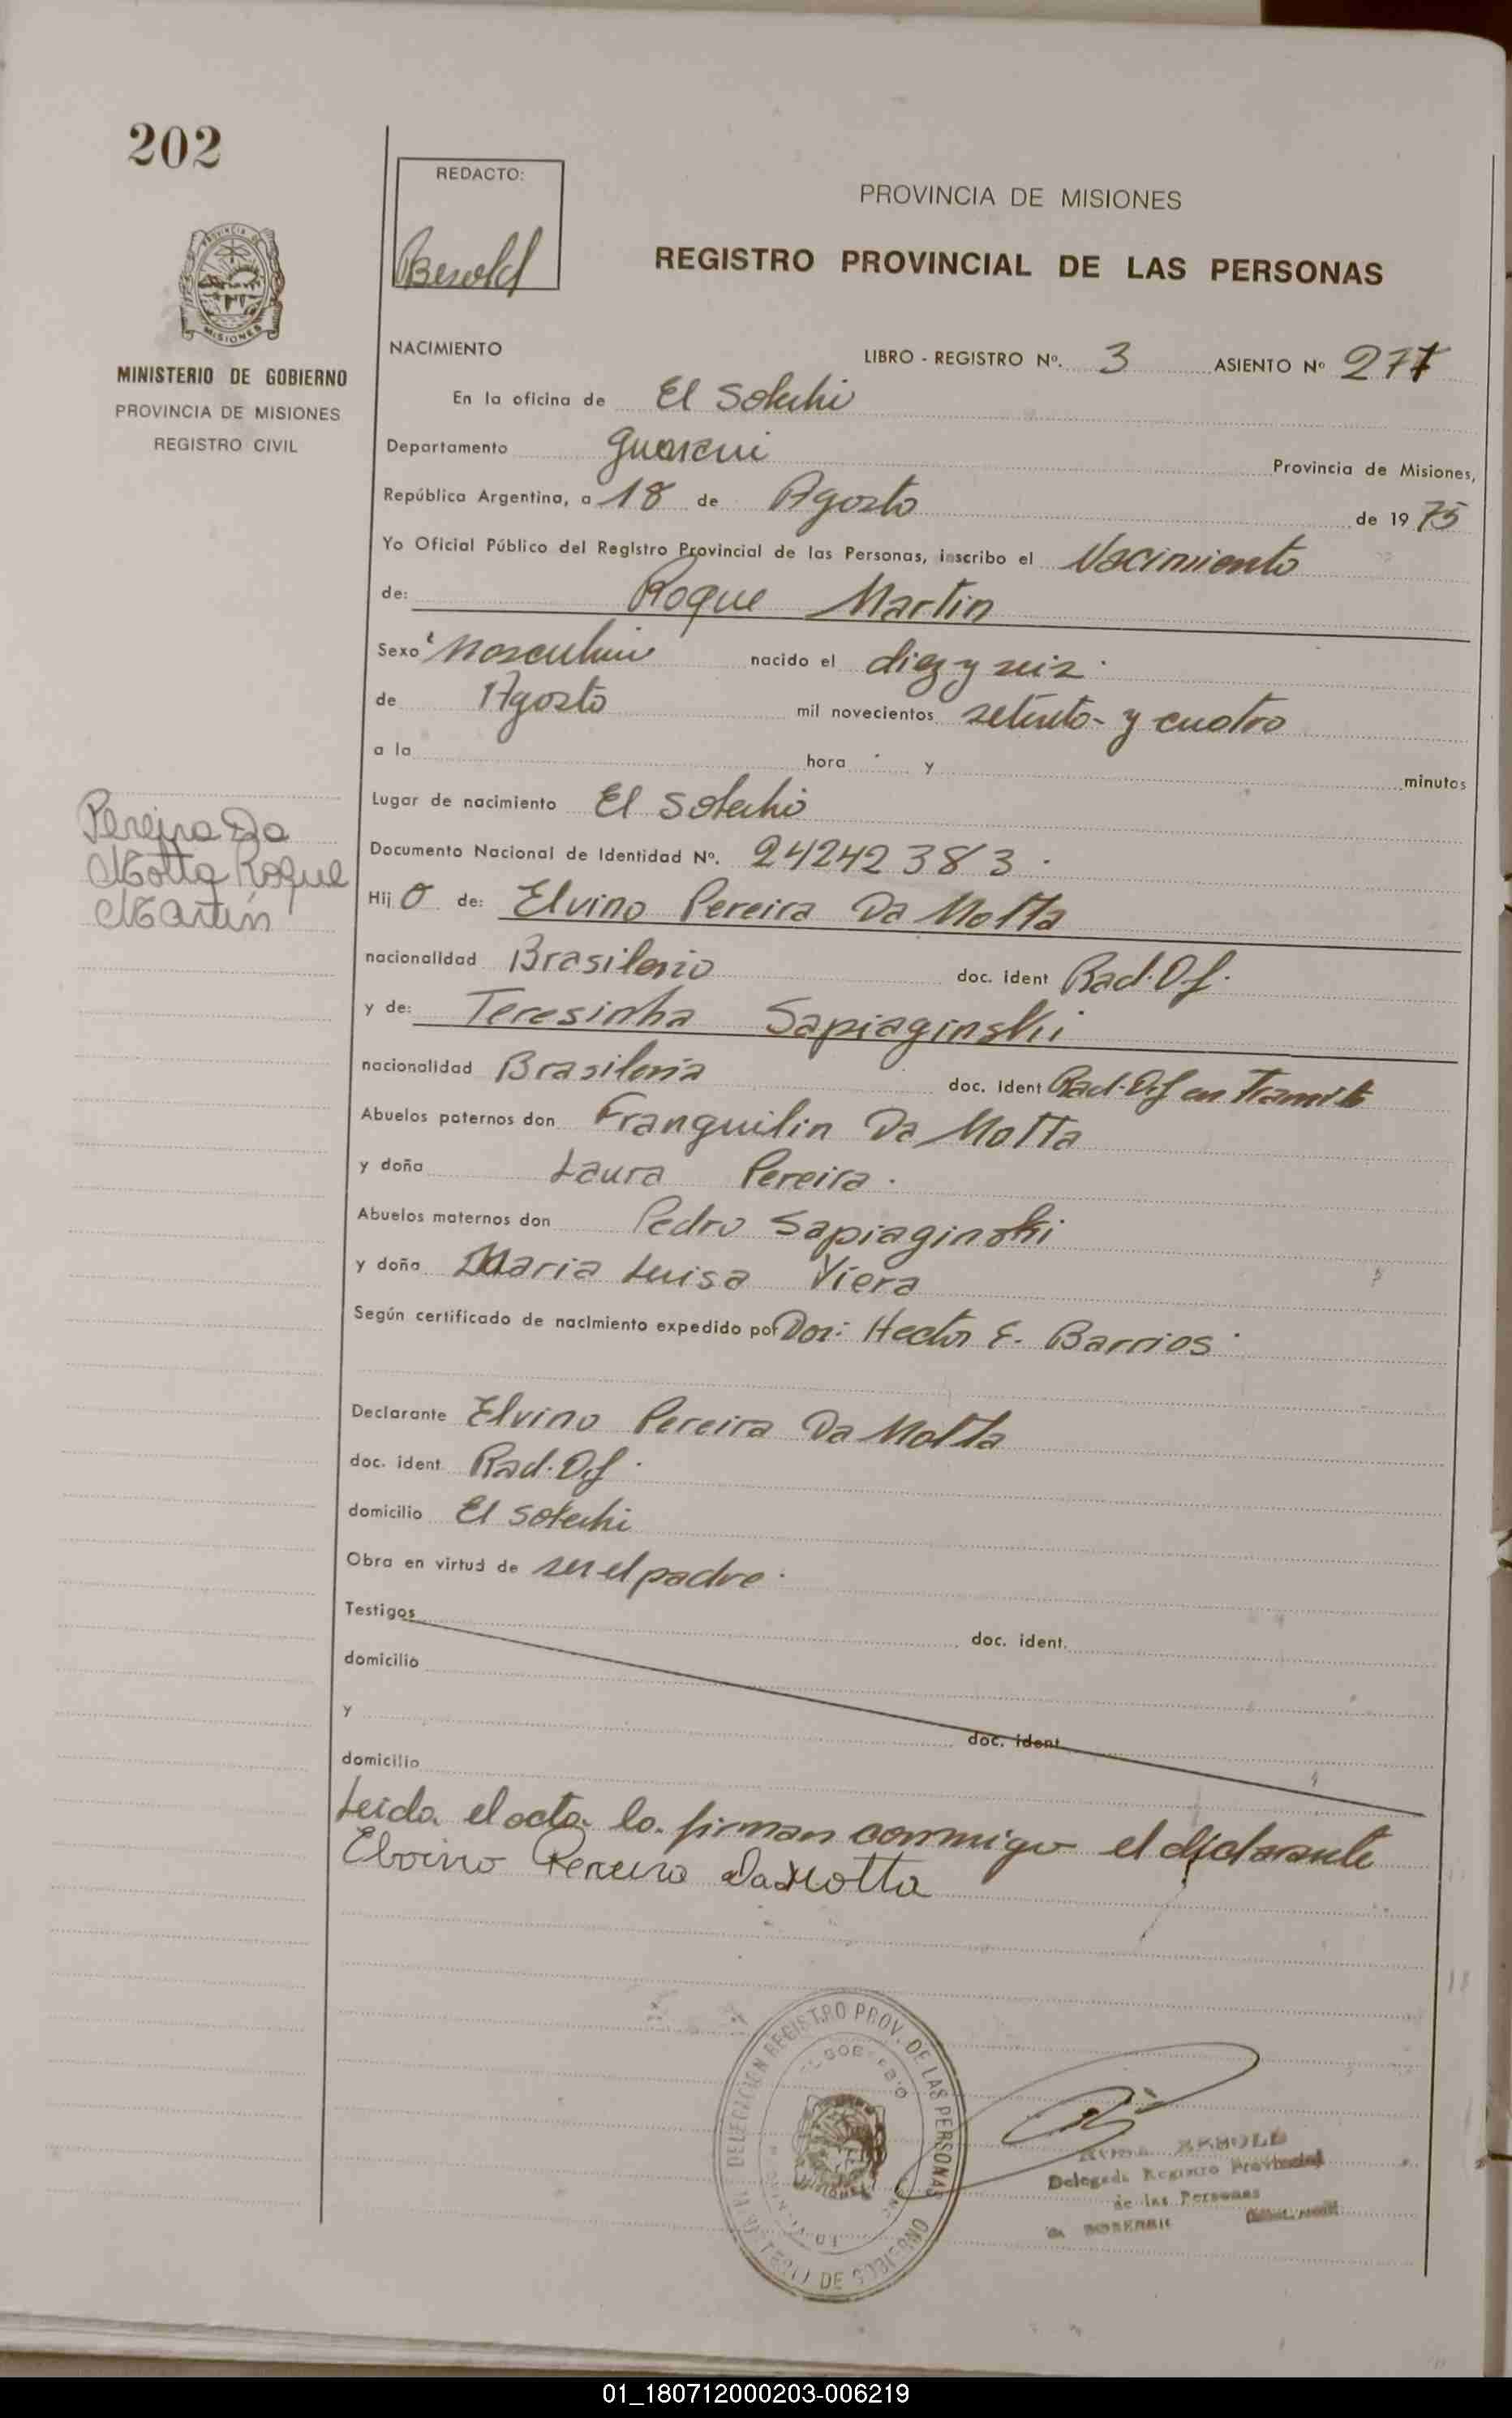 202
REDACTO:
Besold
PROVINCIA DE MISIONES
REGISTRO PROVINCIAL DE LAS PERSONAS
MINISTERIO DE GOBIERNO
PROVINCIA DE MISIONES
REGISTRO CIVIL
NACIMIENTO
LIBRO - REGISTRO Nº. 3 ASIENTO Nº 277
En la oficina de El Soberbio
Departamento Guarani Provincia de Misiones,
República Argentina, a 18 de Agosto de 1975
Yo Oficial Público del Registro Provincial de las Personas, inscribo el Nacimiento
de: Roque Martin
Sexo Masculino nacido el diez y seis
de Agosto mil novecientos setenta y cuatro
a la hora y minutos
Lugar de nacimiento El Soberbio
Documento Nacional de Identidad Nº. 24242383.
Pereira Da
Motta Roque
Martín
Hijo de: Elvino Pereira Da Motta
nacionalidad Brasilerio doc. ident Rad. Of.
y de: Teresinha Sapiaginski
nacionalidad Brasileria doc. ident Rad. Of en Tramite
Abuelos paternos don Franguilin Da Motta
y doña Laura Pereira.
Abuelos maternos don Pedro Sapiaginski
y doña Maria Luisa Viera
Según certificado de nacimiento expedido por Hector E. Barrios
Declarante Elvino Pereira Da Motta
doc. ident. Rad. Of.
domicilio El Soberbio
Obra en virtud de ser el padre.
Testigos doc. ident.
domicilio
y doc. ident.
domicilio
Leida el acta la firman conmigo el declarante
Elvino Pereira Da Motta
DELEGACION REGISTRO PROV. DE LAS PERSONAS
MINISTERIO DE GOBIERNO
EL SOBERBIO
MISIONES
BESOLD
Delegada Registro Provincial
de las Personas
01_180712000203-006219